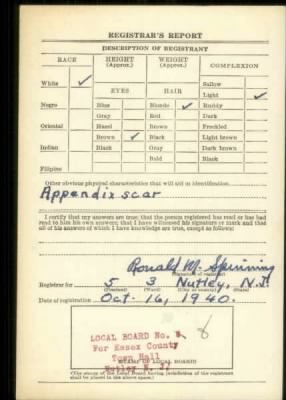 REGISTRAR'S REPORT
DESCRIPTION OF REGISTRANT
RACE HEIGHT (Approx.) WEIGHT (Approx.) COMPLEXION
White ✓ Sallow
EYES HAIR Light ✓
Negro Blue Blonde ✓ Ruddy
Gray Red Dark
Oriental Hazel Brown Freckled
Brown ✓ Black Light brown
Indian Black Gray Dark brown
Bald Black
Filipino
Other obvious physical characteristics that will aid in identification
Appendix scar
I certify that my answers are true; that the person registered has read or has had
read to him his own answers; that I have witnessed his signature or mark and that
all of his answers of which I have knowledge are true, except as follows:
Ronald M. Spinning
Registrar for 5 3 Nutley, N.J.
(Precinct) (Ward) (City or county) (State)
Date of registration Oct. 16, 1940.
LOCAL BOARD No. 8
For Essex County
Town Hall
Nutley N. J.
STAMP OF LOCAL BOARD
(The stamp of the Local Board having jurisdiction of the registrant
shall be placed in the above space.)